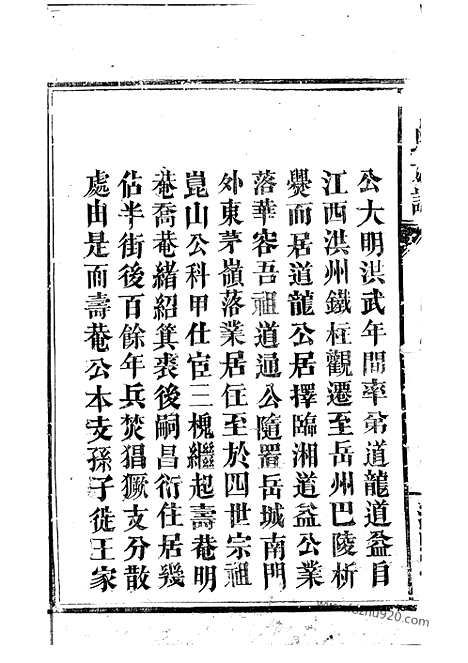 公大明洪武年間率弟道龍道益自
江西洪州鐵柱觀遷至岳州巴陵析
爨而居道龍公居擇臨湘道益公業
落華容吾祖道通公隨置岳城南門
外東茅嶺落業居住至於四世宗祖
崑山公科甲仕宦三槐繼起壽菴明
菴喬菴緒紹箕裘後嗣昌衍住居幾
佔半街後百餘年兵焚猖獗支分散
處由是而壽菴公本支孫子徙王家
www.fozhu920.com